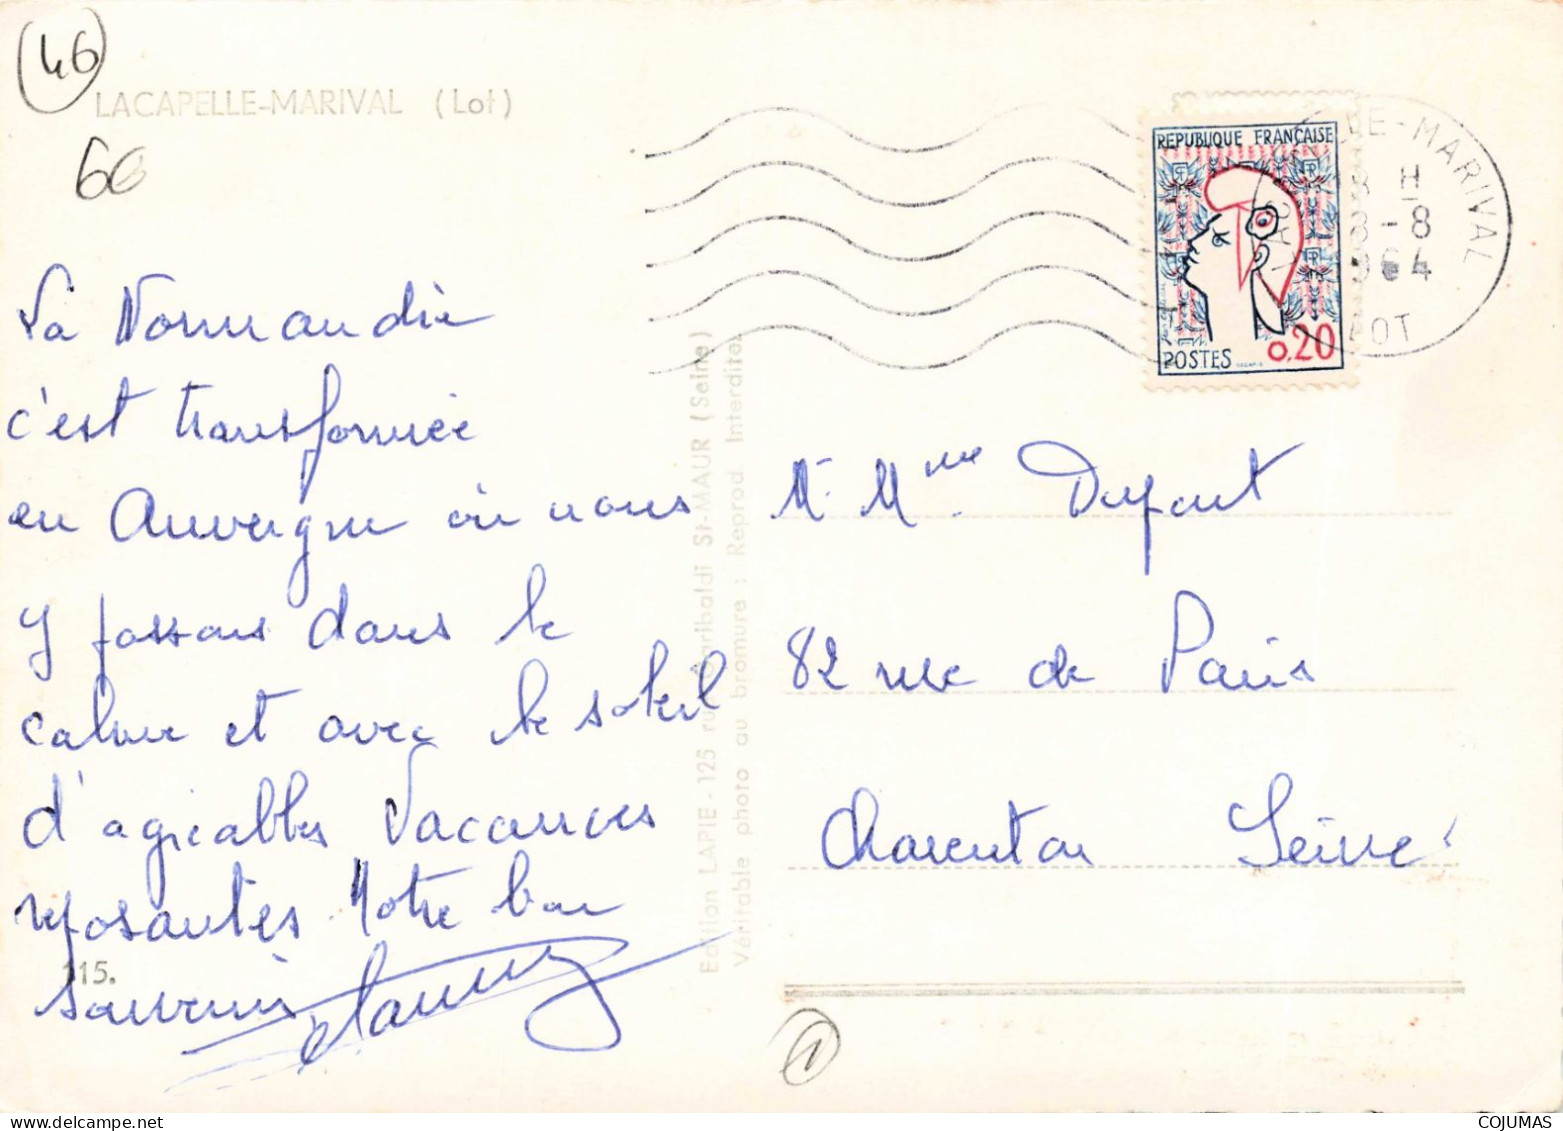 46
LACAPELLE-MARIVAL (Lot)
60
La Normandie
c'est transformée
en Auvergne où nous
y passons dans le
calme et avec le soleil
d'agréables Vacances
reposantes Notre bon
souvenir
115.
Edition LAPIE - 125 rue Garibaldi St-MAUR (Seine)
Véritable photo au bromure : Reprod Interdite
REPUBLIQUE FRANÇAISE
POSTES 0,20
LE-MARIVAL
H
8-8
1964
LOT
M. Mme Dupont
82 rue de Paris
Charenton Seine
1
COJUMAS